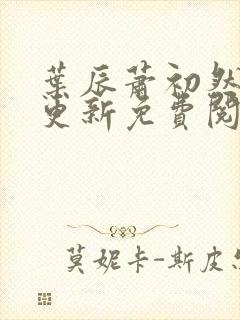 葉辰蕭初然
更新免費閱
莫妮卡-斯皮